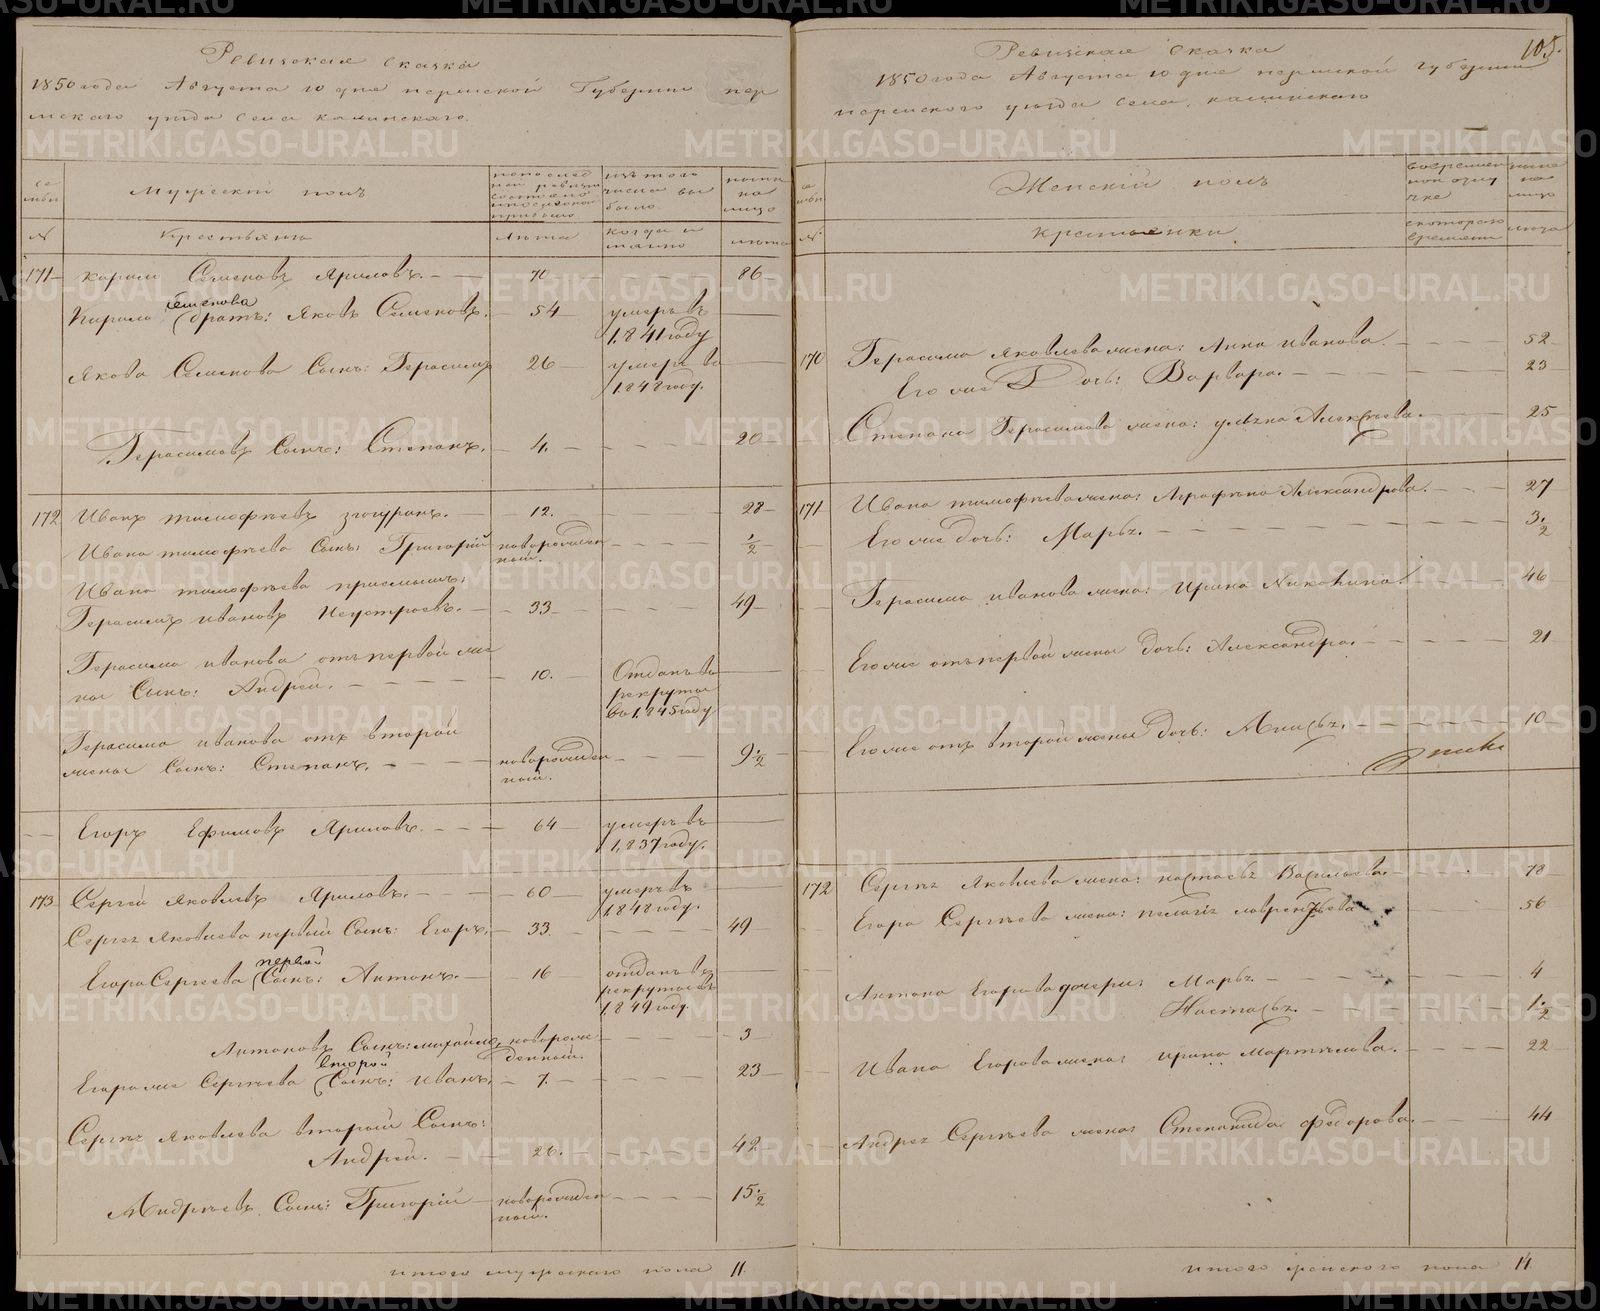 Ревизская сказка
1850 года Августа 10 дня пермской Губернии пер
мскаго уезда села калинскаго.
се мьи
Мужеский пол
по последней ревизии состояло и после оной прибыло
изъ того числа выбыло
ныне на лицо
№ Крестьянъ Лѣта когда и именно лѣта
171 кирило Семеновъ Яриловъ. 70 86
семенова
Кирила братъ: Яковъ Семеновъ. 54 умеръ въ
1841 году
Якова Семенова Сынъ: Герасимъ 26 умеръ во
1848 году.
Герасимовъ Сынъ: Степанъ. 4. 20
172 Иванъ тимофѣевъ 12. 28
Ивана тимофѣева Сынъ: Григорій новорожден ½
ный.
Ивана тимофѣева приемышъ:
Герасимъ ивановъ Неустроевъ. 33 49
Герасима иванова отъ первой же
ны Сынъ: Андрей. 10. Отданъ въ
рекруты
во 1845 году
Герасима иванова отъ второй
жены Сынъ: Степанъ. новорожден 9½
ный.
Егоръ Ефимовъ Яриловъ. 64 умеръ въ
1837 году.
173 Сергей Яковлевъ Яриловъ. 60 умеръ въ
1848 году.
Сергея Яковлева первый Сынъ: Егоръ. 33. 49
первой
Егора Сергеева Сынъ: Антонъ. 16 отданъ въ
рекруты въ
1849 году.
Антоновъ Сынъ: михайло новорож 3
денный.
второй
Егора же Сергѣева Сынъ: иванъ. 7. 23
Сергея Яковлева второй Сынъ:
Андрей. 26. 42
Андрѣевъ Сынъ: Григорій новорожден 15½
ный.
итого мужескаго пола 11
105.
Ревизская Сказка
1850 года Августа 10 дня пермской губернии
пермского уезда Села
Женскій полъ
во временной отлучке
ныне на лицо
№ крестьянки с котораго времени лѣта
170 Герасима Яковлева жена: Анна иванова. 52
Его же Дочь: Варвара. 23
Степана Герасимова жена: ульяна Алексѣева. 25
171 Ивана тимофѣева жена: Аграфѣна Александрова. 27
Его же дочь: Марья. 3½
Герасима иванова жена: Ирина Никонина. 46
Его же отъ первой жены дочь: Александра. 21
Его же отъ второй жены дочь: Анисья. 10
172 Сергея Яковлева жена: настасья Васильева. 78
Егора Сергѣева жена: пелагія лаврентьева 56
Антона Егорова дочери: Марья. 4
Настасья. 1½
Ивана Егорова жена: ирина Мартынова. 22
Андрея Сергѣева жена: Степанида федорова. 44
итого женского пола 14
METRIKI.GASO-URAL.RU